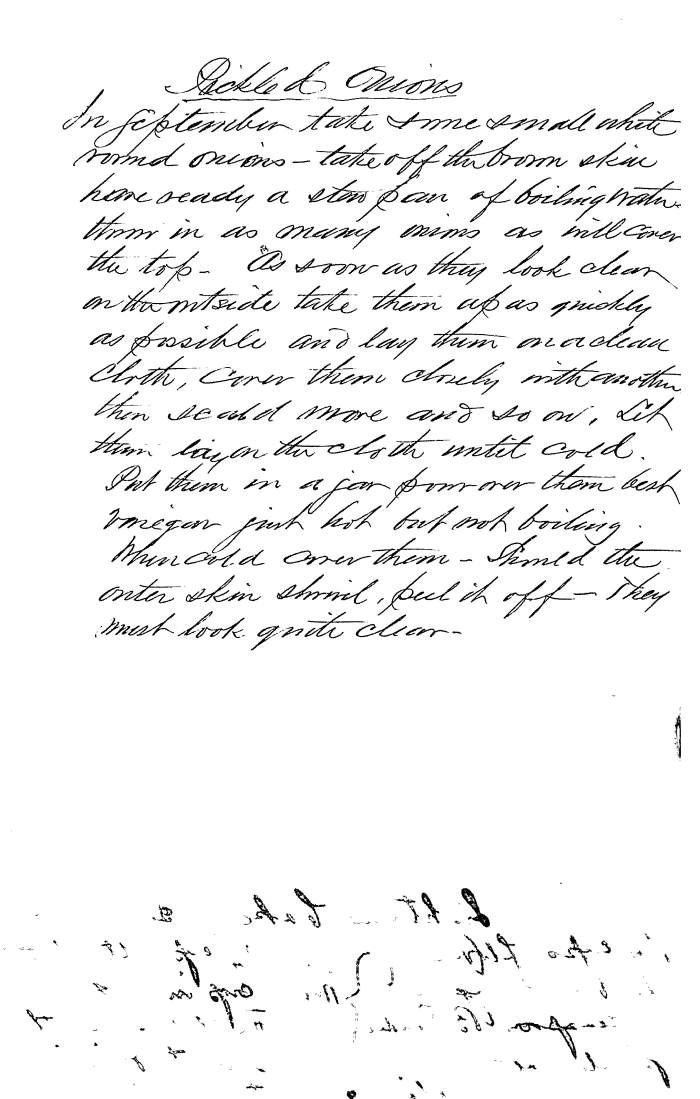 Pickled Onions
In September take some small white
round onions – take off the brown skin
have ready a stew pan of boiling water
throw in as many onions as will cover
the top – As soon as they look clear
on the outside take them up as quickly
as possible and lay them on a clean
cloth, cover them closely with another
then scald more and so on. Let
them lay on the cloth until cold.
Put them in a jar pour over them best
vinegar just hot but not boiling.
When cold cover them – Should the
outer skin shrivel, peel it off – They
must look quite clear –